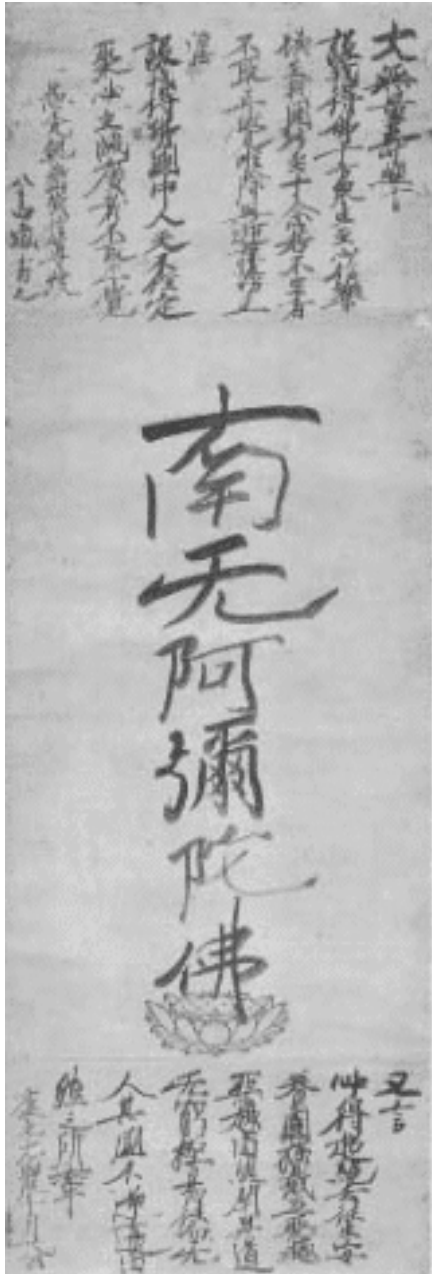 大无量壽經言
設我得佛十方衆生至心信樂
欲生我國乃至十念若不生者
不取正覺唯除五逆誹謗正
法
設我得佛國中人天不住定
聚必至滅度者不取正覺
愚禿親鸞敬信尊号
八十四歳書之
南无阿彌陀佛
又言
必得超絶去往生安
養國横截五惡趣
惡趣自然閉昇道
无窮極易往而无
人其國不逆違自
然之所牽